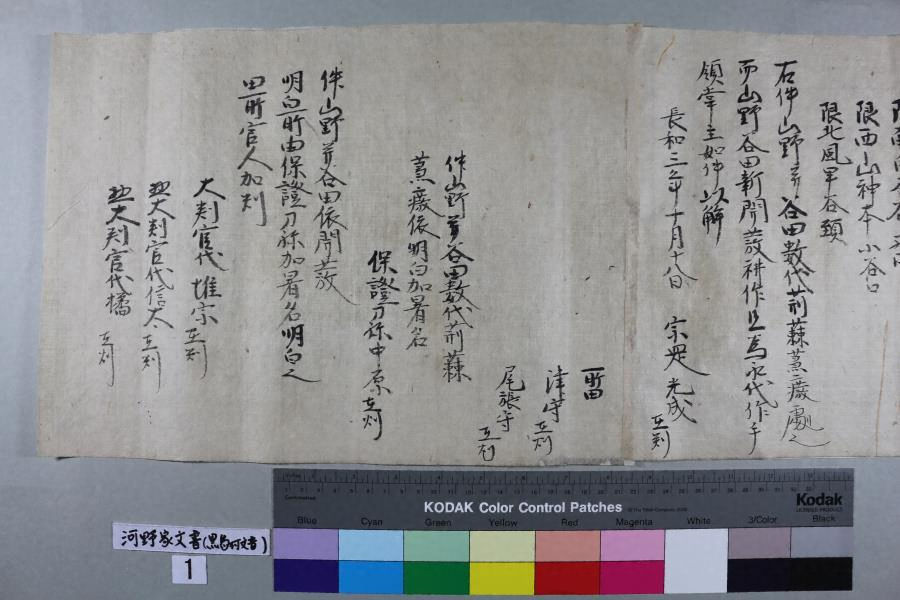 限西山神本小谷口
限北風早谷頸
右件山野并谷田数代荊蕀藁癈劇之
而山野谷田新開発耕作且為永代作手
領掌主如件以解
長和三年十月十八日 宗 光成 在判
一所田
津守 在判
尾張守 在判
件山野并谷田数代荊蕀
藁癈依明白加署名
保證刀祢中原 在判
件山野并谷田依開發
明白所由保證刀祢加署名明白之
田所官人加判
大判官代惟宗 在判
大判官代信太 在判
大判官代橘 在判
KODAK Color Control Patches
Kodak
LICENSED PRODUCT
Blue
Cyan
Green
Yellow
Red
Magenta
White
3/Color
Black
河野家文書(黒島村文書)
1